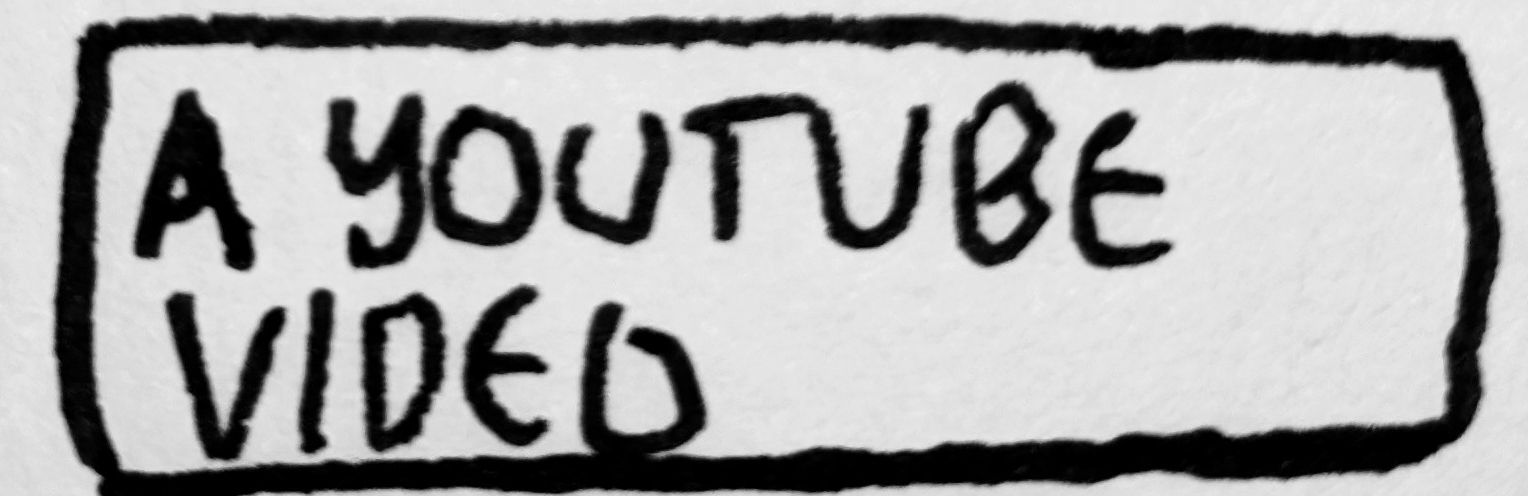 A YOUTUBE
VIDEO